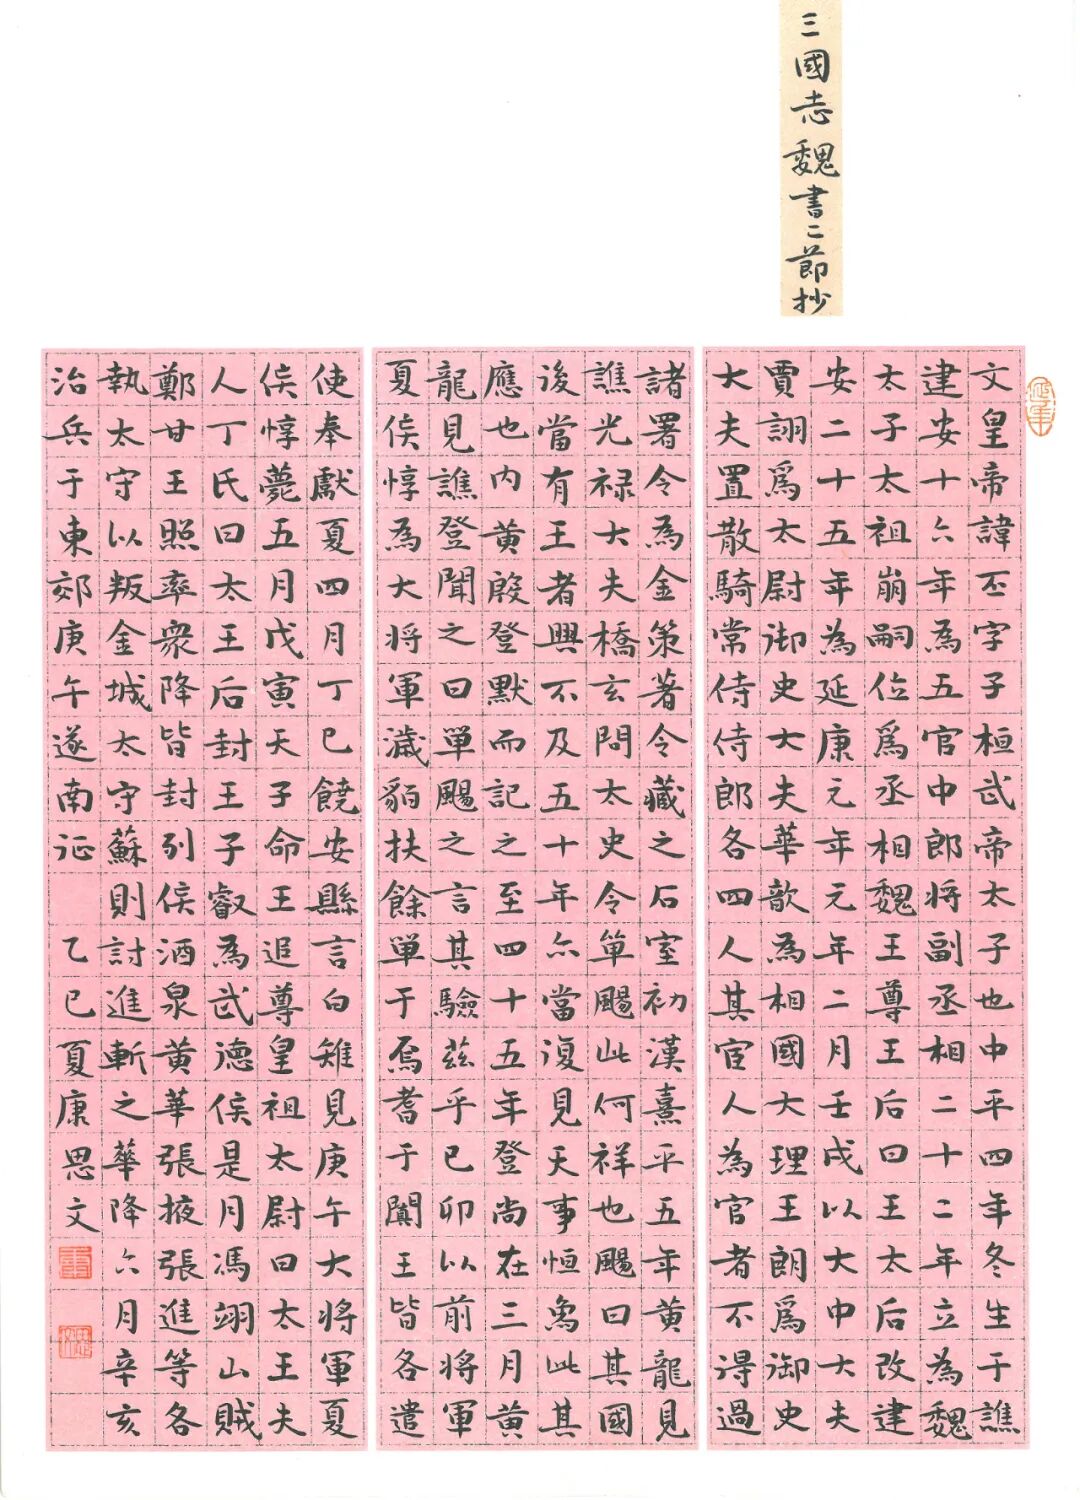 三國志魏書二節抄
文皇帝諱丕字子桓武帝太子也中平四年冬生于譙
建安十六年為五官中郎將副丞相二十二年立為魏
太子太祖崩嗣位爲丞相魏王尊王后曰王太后改建
安二十五年為延康元年元年二月壬戌以大中大夫
賈詡爲太尉御史大夫華歆為相國大理王朗爲御史
大夫置散騎常侍侍郎各四人其宦人為官者不得過
諸署令為金策著令藏之石室初漢熹平五年黄龍見
譙光禄大夫橋玄問太史令單颺此何祥也颺曰其國
後當有王者興不及五十年亦當復見天事恒象此其
應也内黄殷登默而記之至四十五年登尚在三月黄
龍見譙登聞之曰單颺之言其驗茲乎已卯以前將軍
夏侯惇為大将軍濊貊扶餘單于焉耆于闐王皆各遣
使奉獻夏四月丁巳饒安縣言白雉見庚午大將軍夏
侯惇薨五月戊寅天子命王追尊皇祖太尉曰太王夫
人丁氏曰太王后封王子叡為武德侯是月馮翊山賊
鄭甘王照率衆降皆封列侯酒泉黄華張掖張進等各
執太守以叛金城太守蘇則討進斬之華降六月辛亥
治兵于東郊庚午遂南征 乙巳夏康思文